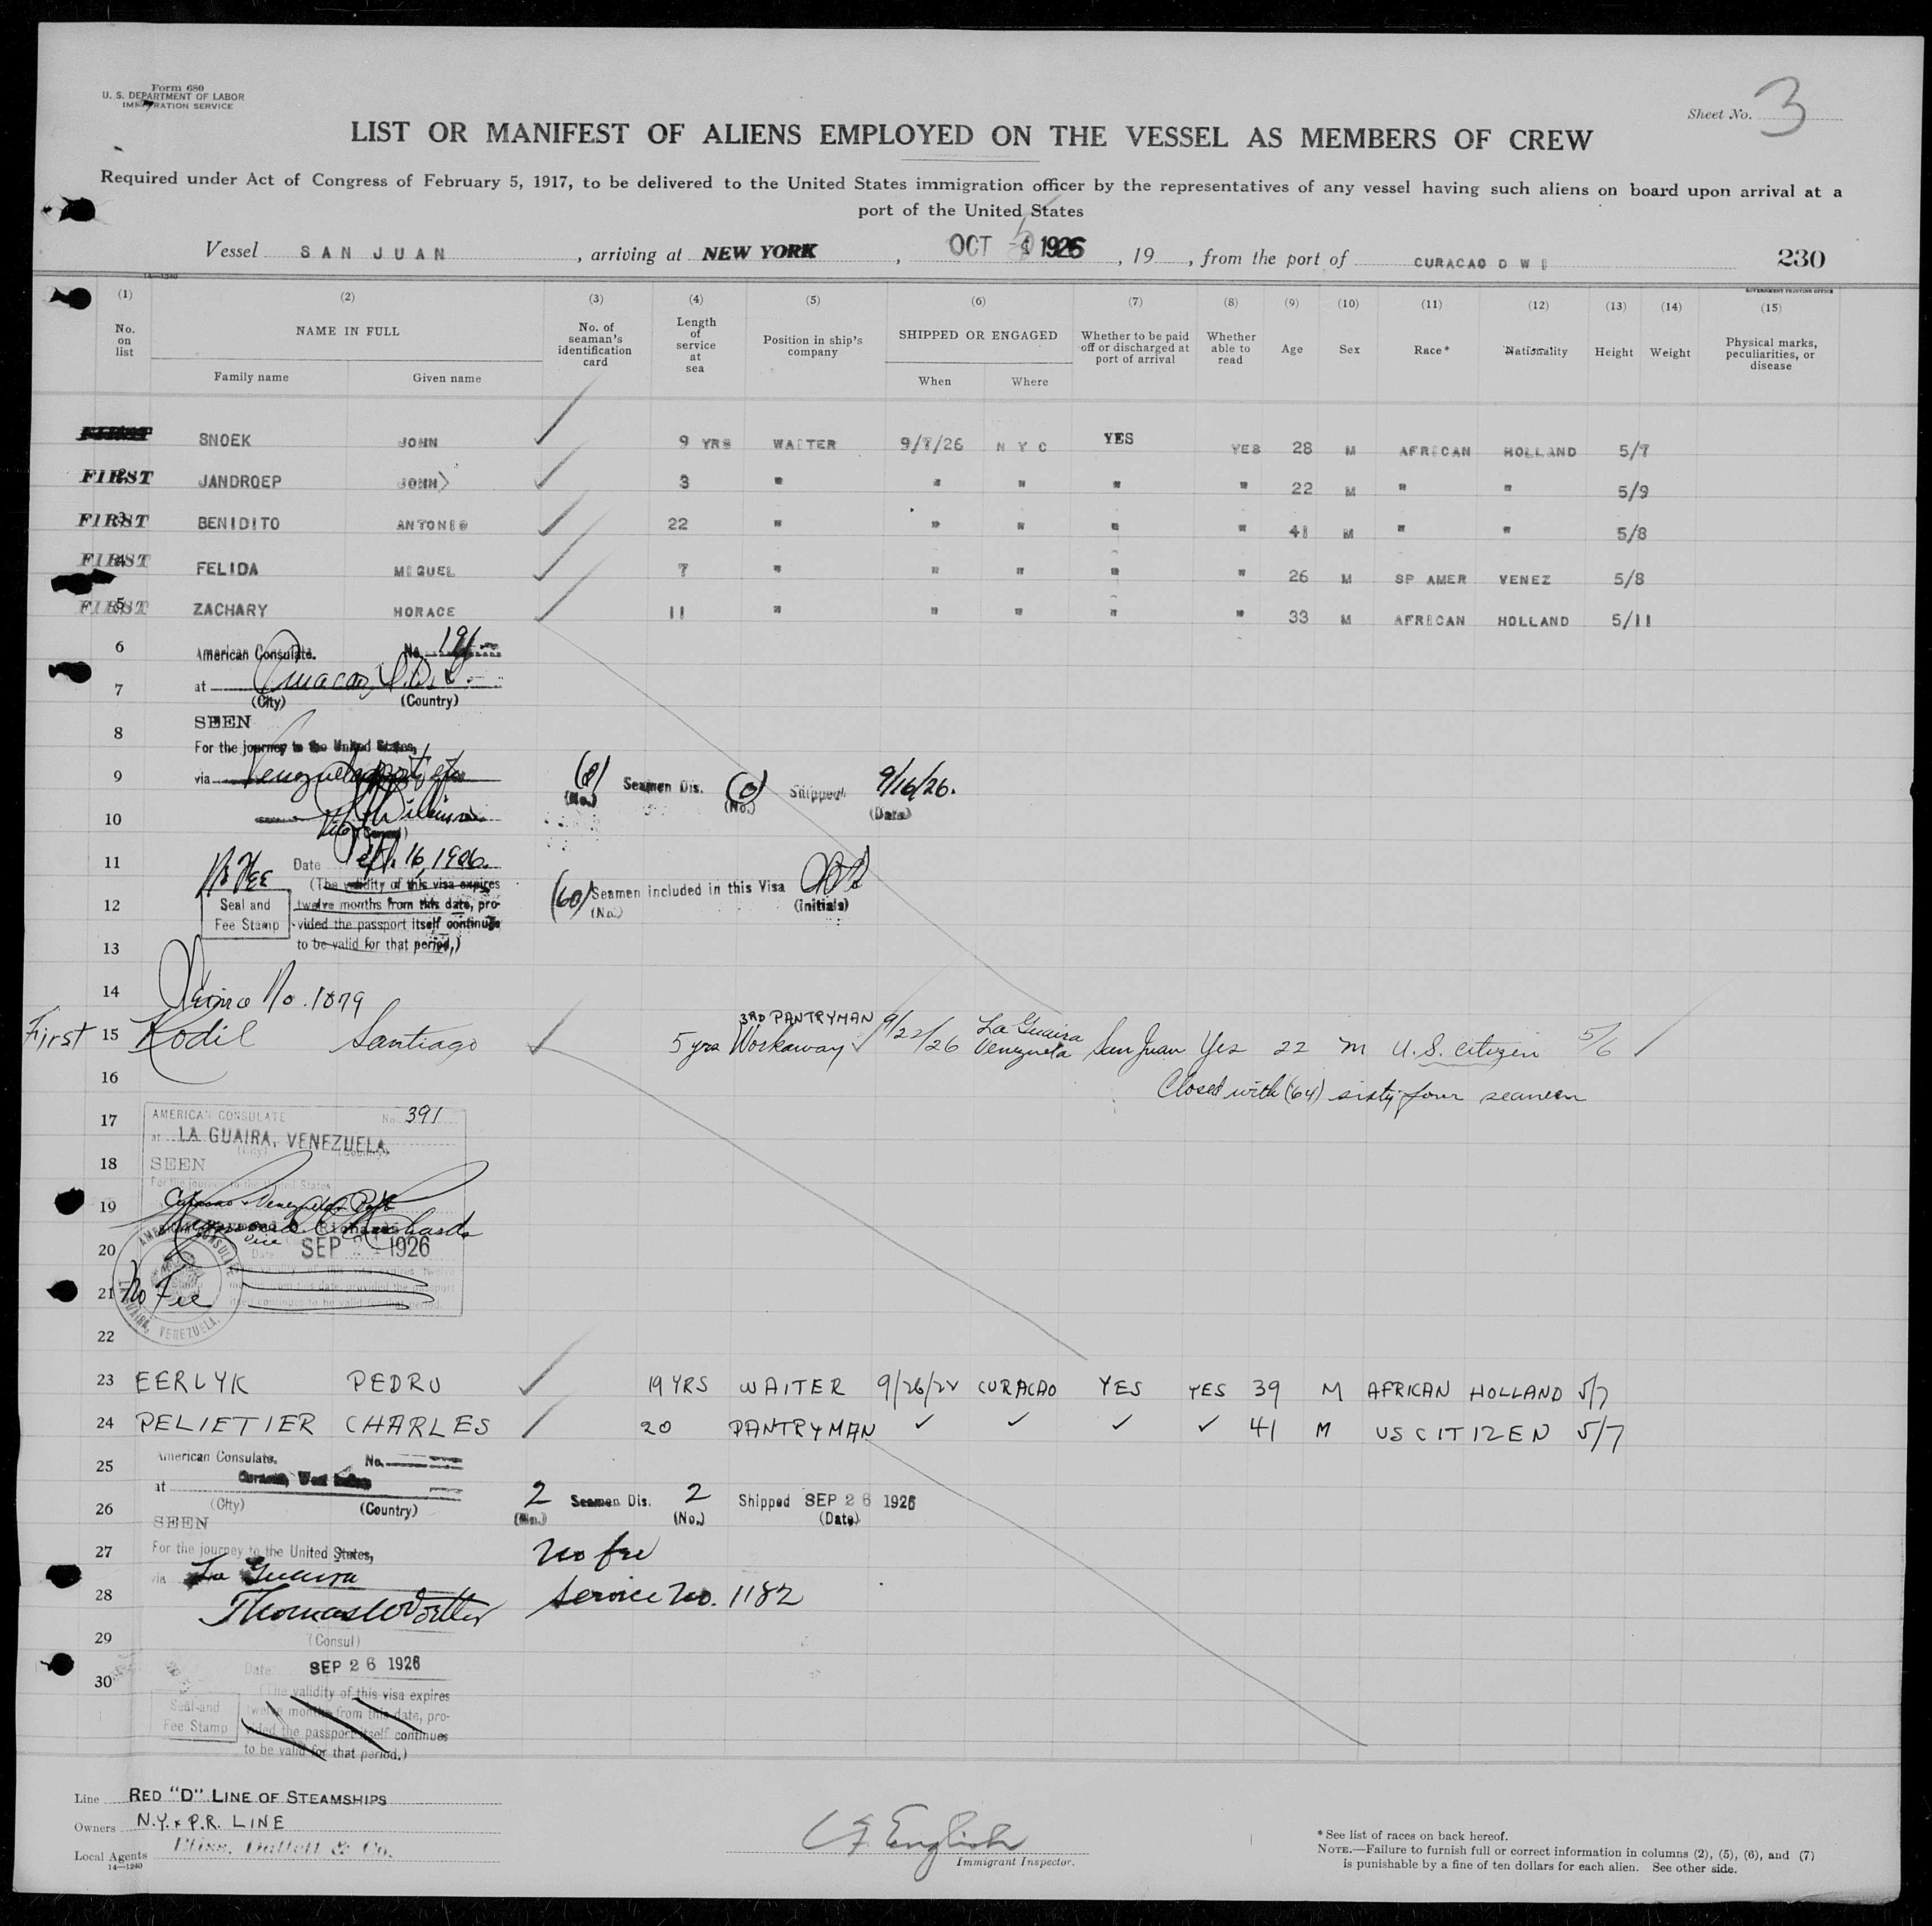 Form 680
U. S. DEPARTMENT OF LABOR
IMMIGRATION SERVICE
Sheet No. 3
LIST OR MANIFEST OF ALIENS EMPLOYED ON THE VESSEL AS MEMBERS OF CREW
Required under Act of Congress of February 5, 1917, to be delivered to the United States immigration officer by the representatives of any vessel having such aliens on board upon arrival at a
port of the United States
Vessel SAN JUAN, arriving at NEW YORK, OCT 1926, 19 , from the port of CURACAO D W I 230
14-1240
GOVERNMENT PRINTING OFFICE
(1) (2) (3) (4) (5) (6) (7) (8) (9) (10) (11) (12) (13) (14) (15)
No. on list NAME IN FULL No. of seaman's identification card Length of service at sea Position in ship's company SHIPPED OR ENGAGED Whether to be paid off or discharged at port of arrival Whether able to read Age Sex Race* Nationality Height Weight Physical marks, peculiarities, or disease
Family name Given name When Where
FIRST SNOEK JOHN 9 YRS WAITER 9/7/26 N Y C YES YES 28 M AFRICAN HOLLAND 5/7
FIRST 2 JANDROEP JOHN 3 " " " " " 22 M " " 5/9
FIRST 3 BENIDITO ANTONIO 22 " " " " " 41 M " " 5/8
FIRST 4 FELIDA MIGUEL 7 " " " " " 26 M SP AMER VENEZ 5/8
FIRST 5 ZACHARY HORACE 11 " " " " " 33 M AFRICAN HOLLAND 5/11
6 American Consulate. No. 191
7 at Curacao, D.W.I.
(City) (Country)
8 SEEN
For the journey to the United States,
9 via Venezuela
(No.) Seamen Dis. (0) (No.) Shipped 9/16/26. (Date)
10
11 No Fee Date Sept. 16, 1926.
(The validity of this visa expires
12 Seal and Fee Stamp twelve months from this date, provided the passport itself continues
(60) Seamen included in this Visa
(No.) (Initials)
13 to be valid for that period.)
14 Service No. 1079
First 15 Rodil Santiago 5 yrs 3RD PANTRYMAN Workaway 9/22/26 La Guaira Venezuela San Juan Yes 22 M U.S. citizen 5/6
16 Closed with (64) sixty four seamen
17 AMERICAN CONSULATE No. 391
at LA GUAIRA, VENEZUELA.
(City) (Country)
18 SEEN
For the journey to the United States
19
Vice
20 Date SEP 1926
AMERICAN CONSULATE LA GUAIRA, VENEZUELA.
21 No Fee
22
23 EERLYK PEDRO 19 YRS WAITER 9/26/26 CURACAO YES YES 39 M AFRICAN HOLLAND 5/7
24 PELIETIER CHARLES 20 PANTRYMAN ✓ ✓ ✓ ✓ 41 M US CITIZEN 5/7
American Consulate. No.
25 at
26 (City) (Country) 2 Seamen Dis. 2 Shipped SEP 26 1926
(No.) (No.) (Date)
SEEN
27 For the journey to the United States, No fee
via La Guaira
28 Service No. 1182
29 (Consul)
Date SEP 26 1926
30 (The validity of this visa expires
Seal and Fee Stamp twelve months from this date, provided the passport itself continues
to be valid for that period.)
Line RED "D" LINE OF STEAMSHIPS
Owners N.Y. & P.R. LINE
Local Agents Bliss, Dallett & Co.
14-1240
English
Immigrant Inspector.
*See list of races on back hereof.
NOTE.—Failure to furnish full or correct information in columns (2), (5), (6), and (7)
is punishable by a fine of ten dollars for each alien. See other side.